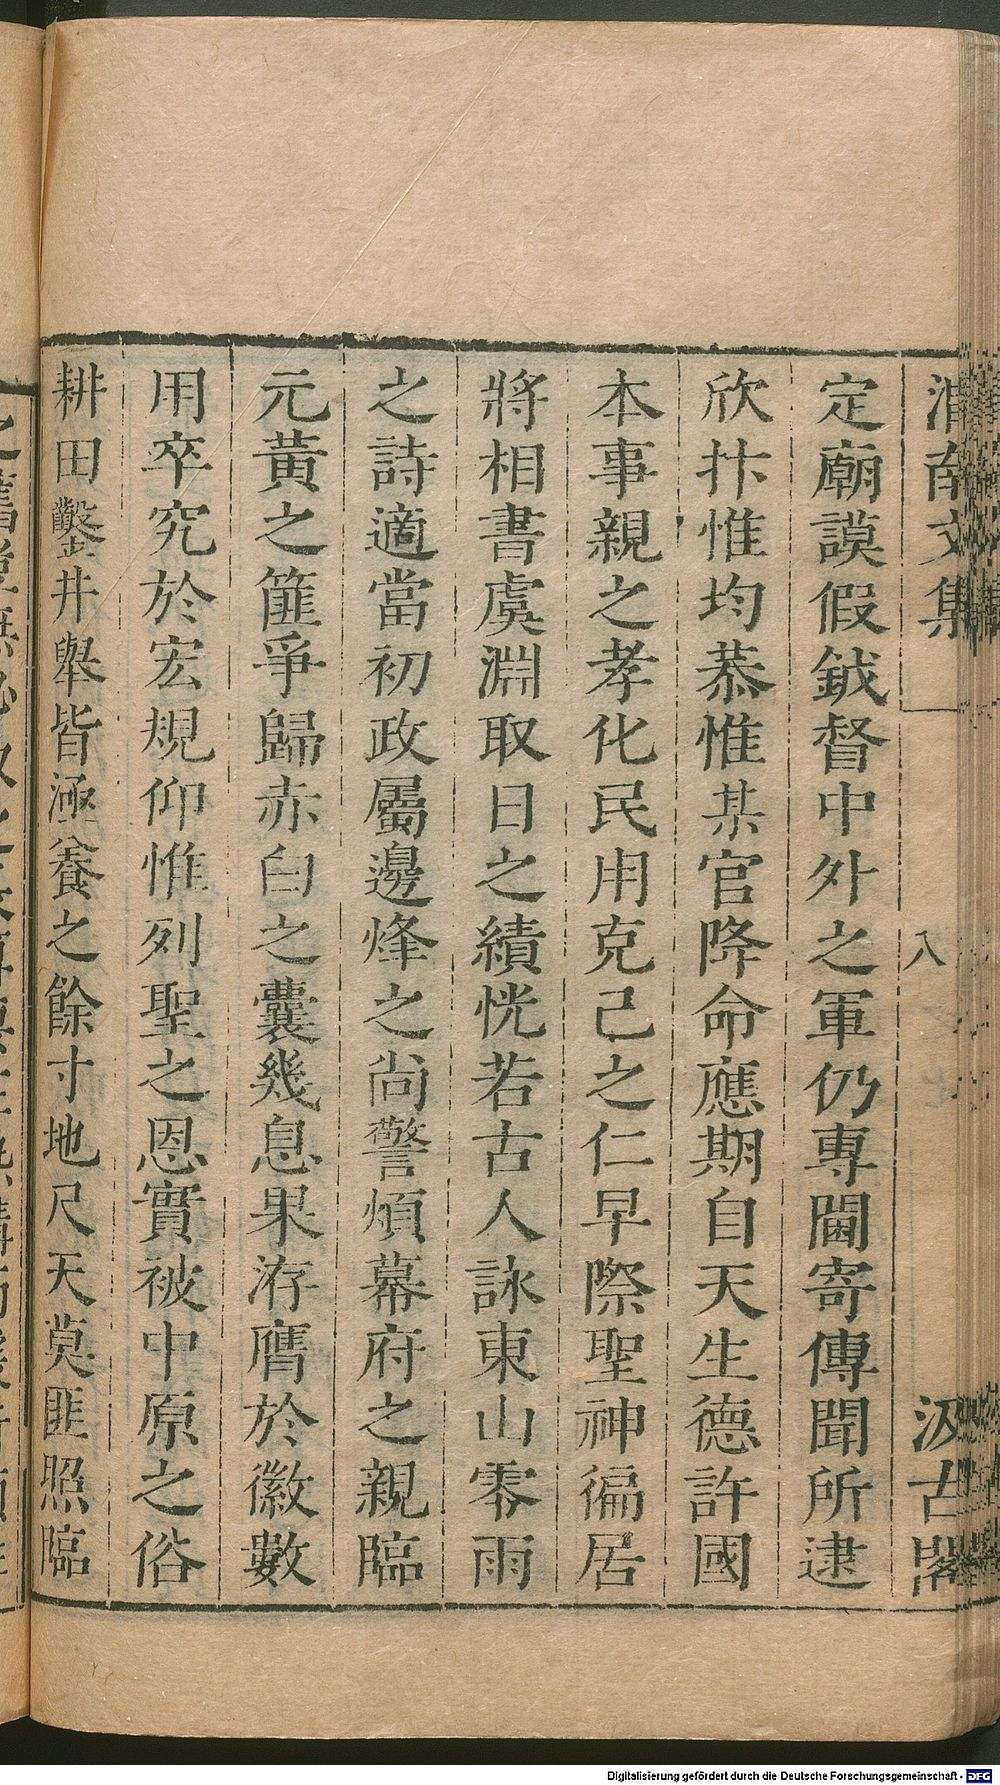 渭南文集
八
汲古閣
定廟謨假鉞督中外之軍仍專閫寄傳聞所逮
欣抃惟均恭惟某官降命應期自天生德許國
本事親之孝化民用克己之仁早際聖神徧居
將相書虞淵取日之績恍若古人詠東山零雨
之詩適當初政屬邊烽之尙警煩幕府之親臨
元黃之篚爭歸赤白之囊幾息果洊膺於徽數
用卒究於宏規仰惟列聖之恩實被中原之俗
耕田鑿井舉皆涵養之餘寸地尺天莫匪照臨
Digitalisierung gefördert durch die Deutsche Forschungsgemeinschaft - DFG